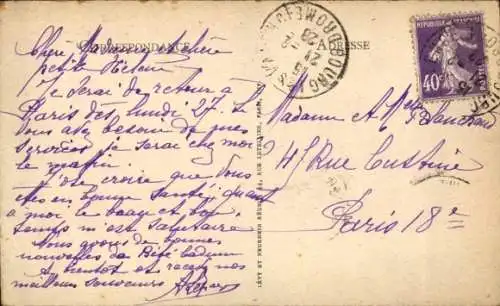 CORRESPONDANCE
ADRESSE
Chère Madame et chère
petite Hélène
Je serai de retour à
Paris dès lundi 27. Si
vous avez besoin de mes
services je serai chez moi
le matin.
J'ose croire que vous
êtes en bonne santé, quant
à moi le beau et bon
temps m'est salutaire
Nous avons de bonnes
nouvelles de Bébé
à bientôt et recevez mes
meilleurs souvenirs
Madame et Melle
41 Rue Custine
Paris 18e
LÉVY ET NEURDEIN RÉUNIS, 44, RUE LETELLIER, PARIS
REPUBLIQUE FRANÇAISE
40c
POSTES